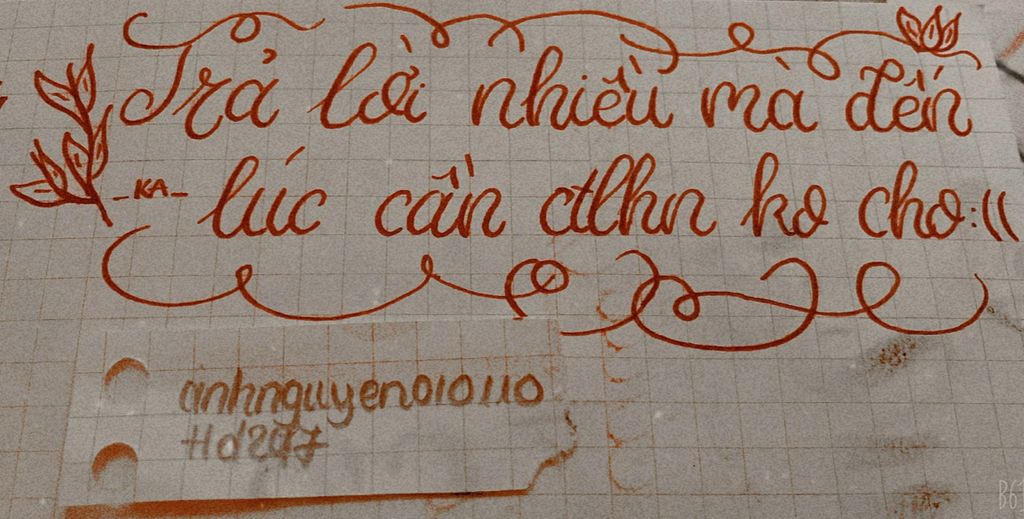 Trả lời nhiều mà đến
_KA_ lúc cần ctlhn ko cho:((
anhnguyen010110
Hd247